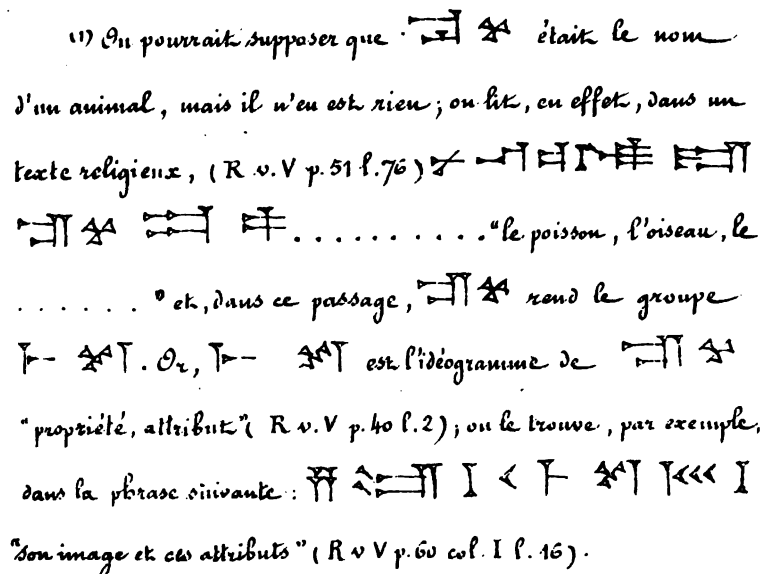 (1) On pourrait supposer que était le nom
d'un animal, mais il n'en est rien ; on lit, en effet, dans un
texte religieux, (R v. V p. 51 l. 76)
. . . . . . . . . . "le poisson, l'oiseau, le
. . . . . . " et, dans ce passage, rend le groupe
. Or, est l'idéogramme de
"propriété, attribut" ( R v. V p. 40 l. 2) ; on le trouve, par exemple,
dans la phrase suivante :
"son image et ces attributs" ( R v V p. 60 col. I l. 16).